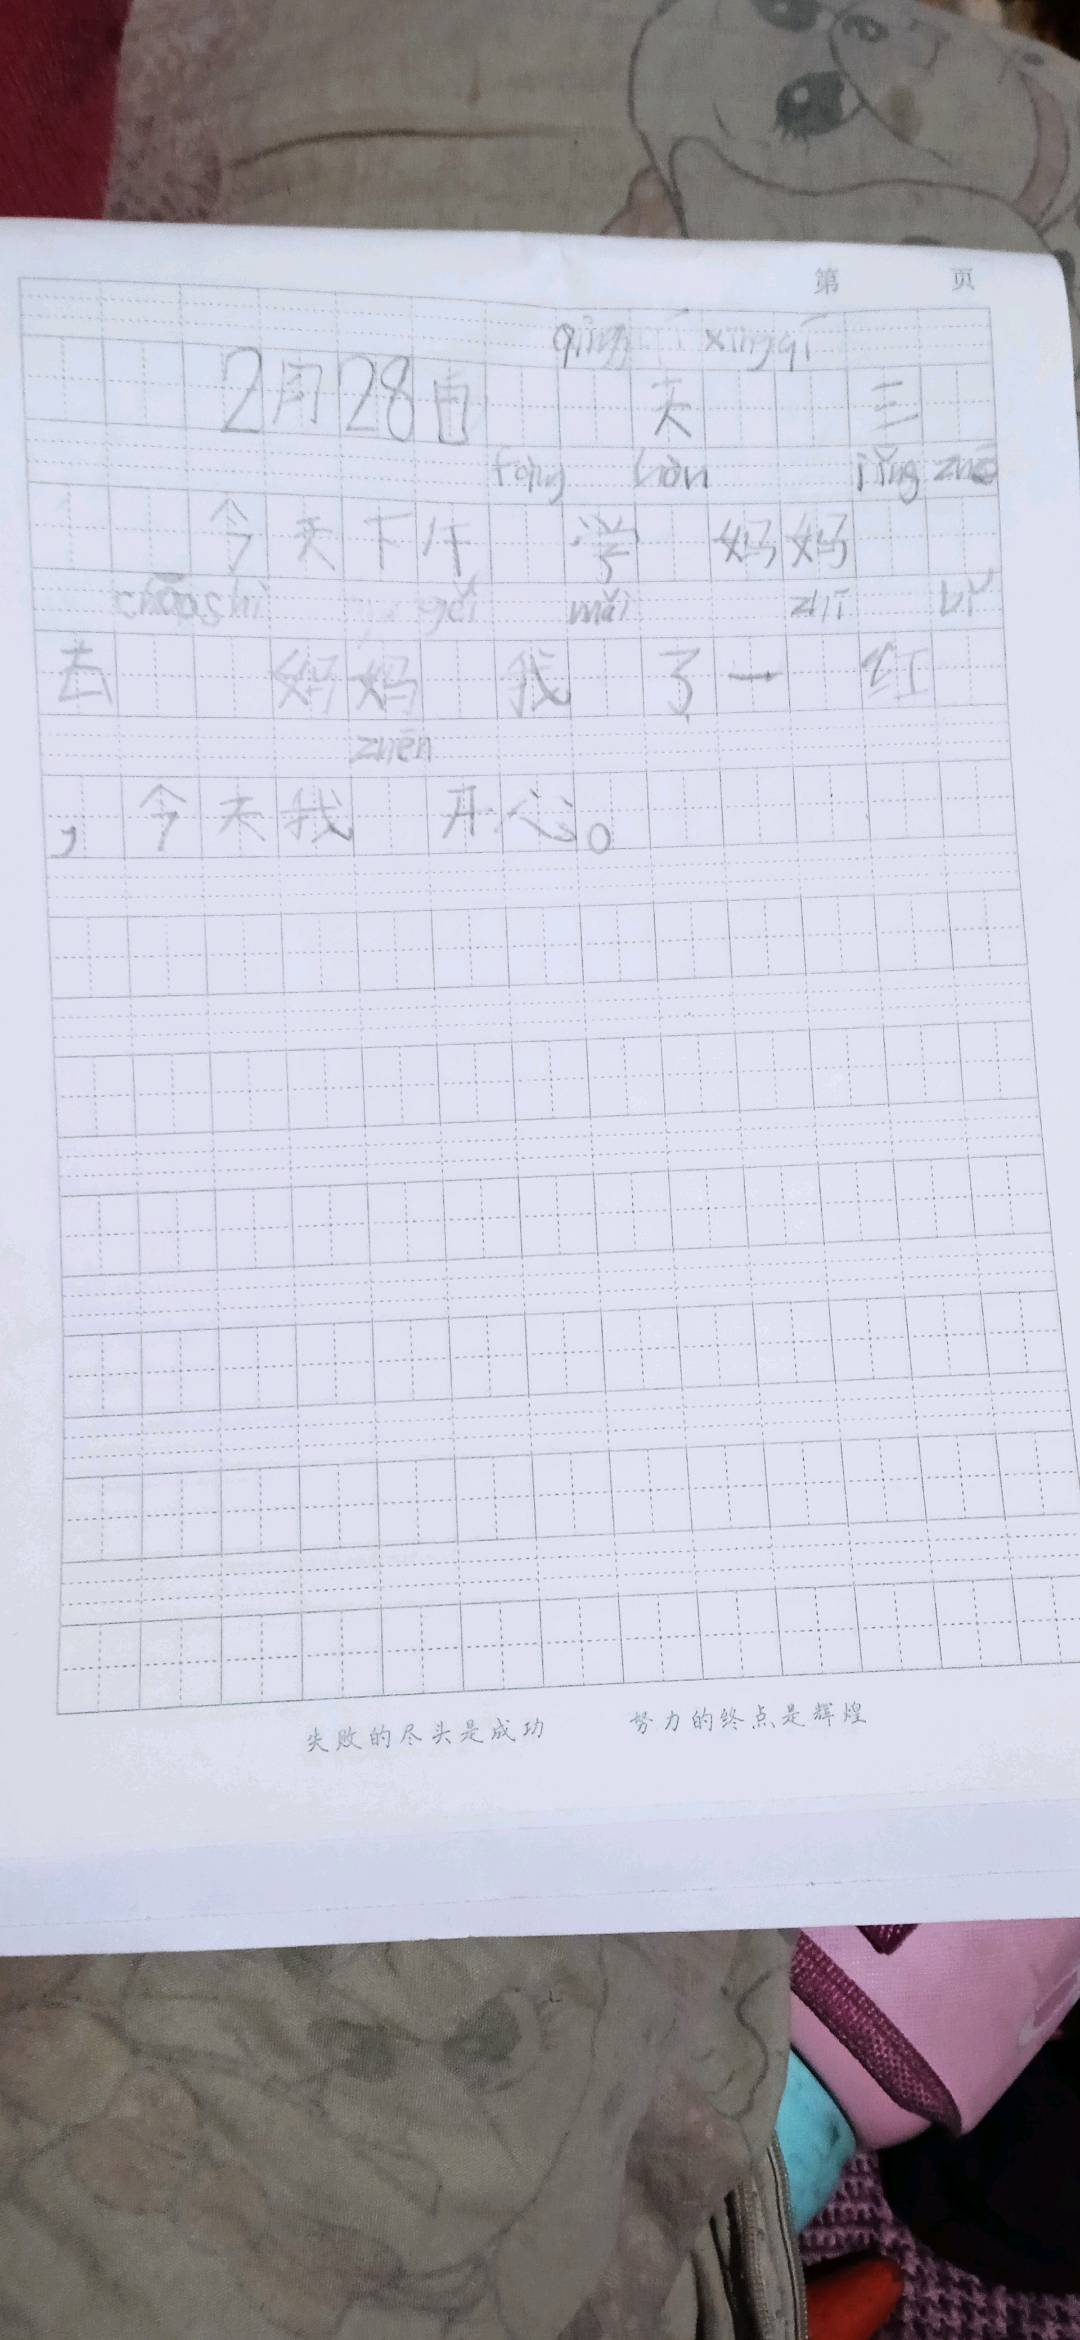 第 页
qíng xīngqī
2月28日 天 三
fàng hòu jǐng zhe
今天下午 学 妈妈
chāoshì gěi mǎi zhī bǐ
去 妈妈 我 了一 红
zhēn
，今天我 开心。
失败的尽头是成功 努力的终点是辉煌